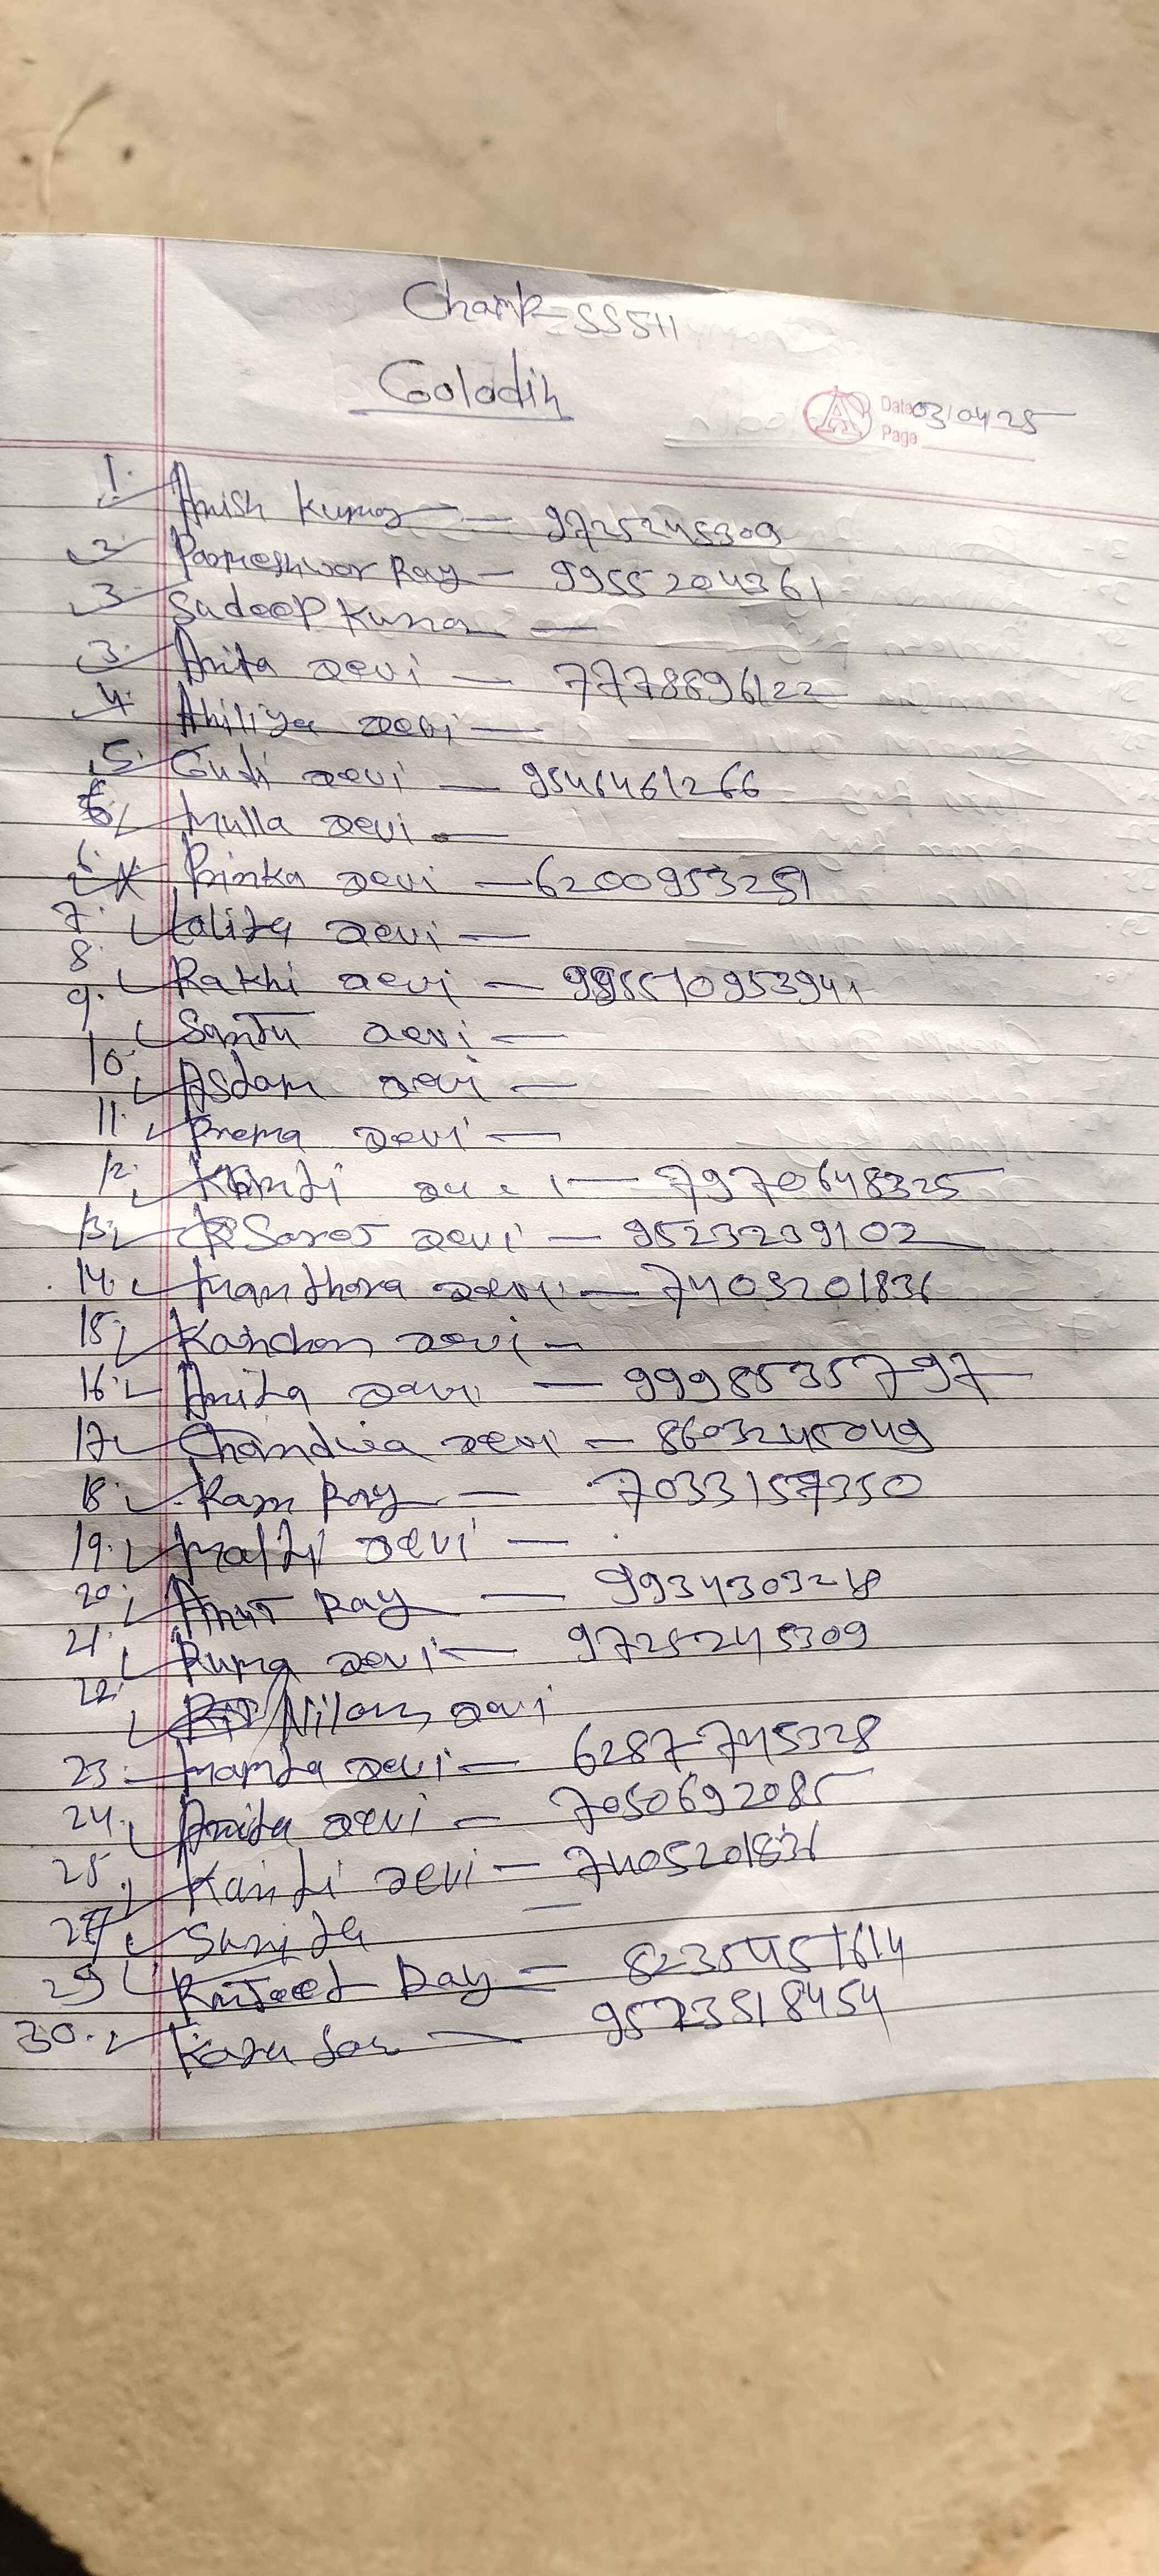 Champ = SS511
Goladih
Date 03/04/25
Page
1. Anish Kumar — 9725245309
2. Parmeshwar Ray — 9955204361
3. Sadeep Kumar —
3. Anita Devi — 7778896122
4. Ahiliya Devi —
5. Gudi Devi — 9546461266
6. Mulla Devi —
6. Prinka Devi — 6200953251
7. Lalita Devi —
8. Rakhi Devi — 995510953941
9. Santu Devi —
10. Asdam Devi —
11. Prema Devi —
12. Kanti — 7970648325
13. Saroj Devi — 9523239102
14. Manthora Devi — 7405201836
15. Kanchan Devi —
16. Anita Devi — 99985357797
17. Chandwa Devi — 8603245049
18. Ram Ray — 7033157350
19. Malti Devi —
20. Ray — 9934303218
21. Ruma Devi — 9725245309
22. Nilam Devi
23. Mamta Devi — 6287745328
24. Anita Devi — 7050692085
25. Kanti Devi — 7405201836
Sunita —
29. Ranjeet Ray — 8235457614
30. — 95723518454